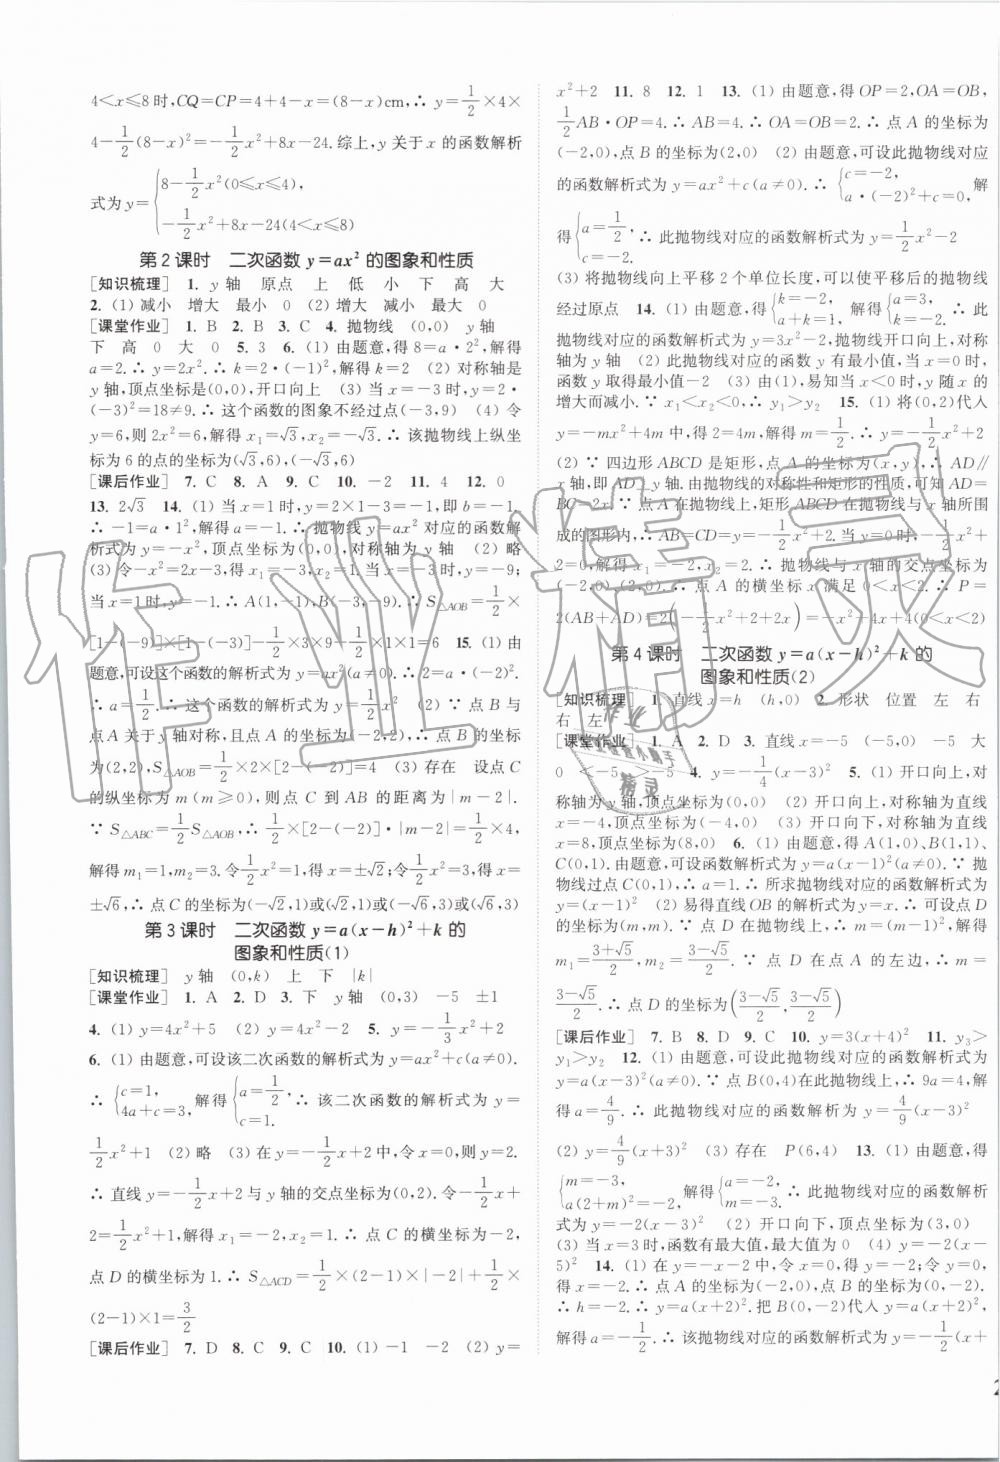 4<x≤8时,CQ=CP=4+4-x=(8-x)cm,∴ y=1/2×4×
4-1/2(8-x)²=-1/2x²+8x-24.综上,y 关于 x 的函数解析
式为 y={8-1/2x²(0≤x≤4),
-1/2x²+8x-24(4<x≤8)
第2课时 二次函数 y=ax² 的图象和性质
[知识梳理] 1. y 轴 原点 上 低 小 下 高 大
2. (1) 减小 增大 最小 0 (2) 增大 减小 最大 0
[课堂作业] 1. B 2. B 3. C 4. 抛物线 (0,0) y 轴
下 高 0 大 0 5. 3 6. (1) 由题意,得 8=a·2²,解得
a=2.∴ y=2x².∴ k=2·(-1)²,解得 k=2 (2) 对称轴是
y 轴,顶点坐标是(0,0),开口向上 (3) 当 x=-3 时,y=2·
(-3)²=18≠9.∴ 这个函数的图象不经过点(-3,9) (4) 令
y=6,则 2x²=6,解得 x₁=√3,x₂=-√3.∴ 该抛物线上纵坐
标为 6 的点的坐标为(√3,6),(-√3,6)
[课后作业] 7. C 8. A 9. C 10. -2 11. 4 12. 0
13. 2√3 14. (1) 当 x=1 时,y=2×1-3=-1,即 b=-1.
∴ -1=a·1²,解得 a=-1.∴ 抛物线 y=ax² 对应的函数解
析式为 y=-x²,顶点坐标为(0,0),对称轴为 y 轴 (2) 略
(3) 令-x²=2x-3,解得 x₁=-3,x₂=1.当 x=-3 时,y=-9;
当 x=1 时,y=-1.∴ A(1,-1),B(-3,-9).∴ S△AOB=1/2×
[1-(-9)]×[1-(-3)]-1/2×3×9-1/2×1×1=6 15. (1) 由
题意,可设这个函数的解析式为 y=ax²(a≠0).∴ 2=a·2².
∴ a=1/2.∴ 这个函数的解析式为 y=1/2x² (2) ∵ 点 B 与点
A 关于 y 轴对称,且点 A 的坐标为(-2,2),∴ 点 B 的坐标
为(2,2),S△AOB=1/2×2×[2-(-2)]=4 (3) 存在 设点 C
的纵坐标为 m(m≥0),则点 C 到 AB 的距离为|m-2|.
∵ S△ABC=1/2S△AOB,∴ 1/2×[2-(-2)]·|m-2|=1/2×4,
解得 m₁=1,m₂=3.令1/2x²=1,得 x=±√2;令1/2x²=3,得 x=
±√6,∴ 点 C 的坐标为(-√2,1)或(√2,1)或(-√6,3)或(√6,3)
第3课时 二次函数 y=a(x-h)²+k 的
图象和性质(1)
[知识梳理] y 轴 (0,k) 上 下 |k|
[课堂作业] 1. A 2. D 3. 下 y 轴 (0,3) -5 ±1
4. (1) y=4x²+5 (2) y=4x²-2 5. y=-1/3x²+2
6. (1) 由题意,可设该二次函数的解析式为 y=ax²+c(a≠0).
∴ {c=1, 4a+c=3, 解得{a=1/2, c=1. ∴ 该二次函数的解析式为 y=
1/2x²+1 (2) 略 (3) 在 y=-1/2x+2 中,令 x=0,则 y=2.
∴ 直线 y=-1/2x+2 与 y 轴的交点坐标为(0,2).令-1/2x+
2=1/2x²+1,解得 x₁=-2,x₂=1.∴ 点 C 的横坐标为-2,
点 D 的横坐标为 1.∴ S△ACD=1/2×(2-1)×|-2|+1/2×
(2-1)×1=3/2
[课后作业] 7. D 8. C 9. C 10. (1) -1 -2 (2) y=
x²+2 11. 8 12. 1 13. (1) 由题意,得 OP=2,OA=OB,
1/2AB·OP=4.∴ AB=4.∴ OA=OB=2.∴ 点 A 的坐标为
(-2,0),点 B 的坐标为(2,0) (2) 由题意,可设此抛物线对应
的函数解析式为 y=ax²+c(a≠0).∴ {c=-2, a·(-2)²+c=0, 解
得{a=1/2, c=-2. ∴ 此抛物线对应的函数解析式为 y=1/2x²-2
(3) 将抛物线向上平移 2 个单位长度,可以使平移后的抛物线
经过原点 14. (1) 由题意,得{k=-2, a+k=1, 解得{a=3, k=-2. ∴ 此
抛物线对应的函数解析式为 y=3x²-2,抛物线开口向上,对称
轴为 y 轴 (2) 此抛物线对应的函数 y 有最小值,当 x=0 时,
函数 y 取得最小值-2 (3) 由(1),易知当 x<0 时,y 随 x 的
增大而减小.∵ x₁<x₂<0,∴ y₁>y₂ 15. (1) 将(0,2)代入
y=-mx²+4m 中,得 2=4m,解得 m=1/2.∴ y=-1/2x²+2
(2) ∵ 四边形 ABCD 是矩形,点 A 的坐标为(x,y),∴ AD∥
x 轴,即 AD⊥y 轴.由抛物线的对称性和矩形的性质,可知 AD=
BC=-2x.∵ 点 A 在抛物线上,矩形 ABCD 在抛物线与 x 轴所围
成的图形内,∴ AB=CD=y=-1/2x²+2.当 y=0 时,-1/2x²+
2=0,解得 x₁=-2,x₂=2.∴ 抛物线与 x 轴的交点坐标为
(-2,0),(2,0).∴ 点 A 的横坐标 x 满足 0<x<2.∴ P=
2(AB+AD)=2(-1/2x²+2+2x)=-x²+4x+4(0<x<2)
第4课时 二次函数 y=a(x-h)²+k 的
图象和性质(2)
[知识梳理] 1. 直线 x=h (h,0) 2. 形状 位置 左 右
右 左
[课堂作业] 1. A 2. D 3. 直线 x=-5 (-5,0) -5 大
0 <-5 >-5 4. y=-1/4(x+3)² 5. (1) 开口向上,对
称轴为 y 轴,顶点坐标为(0,0) (2) 开口向上,对称轴为直线
x=-4,顶点坐标为(-4,0) (3) 开口向下,对称轴为直线
x=8,顶点坐标为(8,0) 6. (1) 由题意,得 A(1,0)、B(1,1)、
C(0,1).由题意,可设函数解析式为 y=a(x-1)²(a≠0).∵ 抛
物线过点 C(0,1),∴ a=1.∴ 所求抛物线对应的函数解析式为
y=(x-1)² (2) 易得直线 OB 的解析式为 y=x.∴ 可设点 D
的坐标为(m,m).∵ 点 D 在抛物线上,∴ m=(m-1)²,解得
m₁=(3+√5)/2,m₂=(3-√5)/2.∵ 点 D 在点 A 的左边,∴ m=
(3-√5)/2.∴ 点 D 的坐标为((3-√5)/2,(3-√5)/2)
[课后作业] 7. B 8. D 9. C 10. y=3(x+4)² 11. y₃>
y₁>y₂ 12. (1) 由题意,可设此抛物线对应的函数解析式为
y=a(x-3)²(a≠0).∵ 点 B(0,4)在此抛物线上,∴ 9a=4,解
得 a=4/9.∴ 此抛物线对应的函数解析为 y=4/9(x-3)²
(2) y=4/9(x-3)² (3) 存在 P(6,4) 13. (1) 由题意,得
{m=-3, a(2+m)²=-2, 解得{a=-2, m=-3. ∴ 此抛物线对应的函数解析
式为 y=-2(x-3)² (2) 开口向下,顶点坐标为(3,0)
(3) 当 x=3 时,函数有最大值,最大值为 0 (4) y=-2(x-
5)² 14. (1) 在 y=-x-2 中,令 x=0,得 y=-2;令 y=0,
得 x=-2.∴ 点 A 的坐标为(-2,0),点 B 的坐标为(0,-2).
∴ h=-2.∴ y=a(x+2)².把 B(0,-2)代入 y=a(x+2)²,
解得 a=-1/2.∴ 该抛物线对应的函数解析式为 y=-1/2(x+
作业精灵